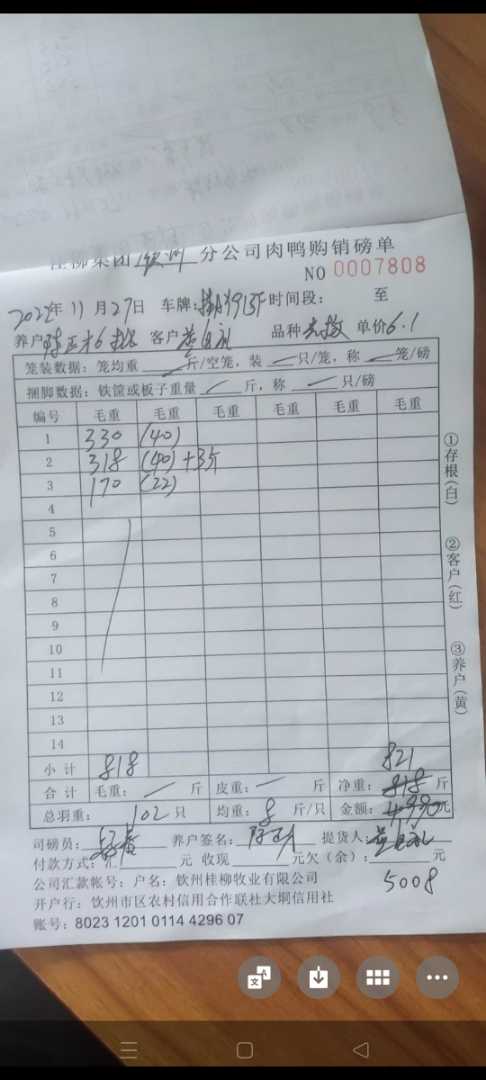 分公司肉鸭购销磅单
NO 0007808
2022年 11月27日 车牌: 时间段: 至
养户 客户 品种 单价6.1
笼装数据: 笼均重 斤/空笼, 装 只/笼, 称 笼/磅
捆脚数据: 铁筐或板子重量 斤, 称 只/磅
编号 毛重 毛重 毛重 毛重 毛重 毛重
1 330 (40)
2 318 (40) +3斤
3 170 (22)
4
5
6
7
8
9
10
11
12
13
14
小计 818 821
合计 毛重: 斤 皮重: 斤 净重: 818 斤
总羽重: 102只 均重: 8 斤/只 金额: 元
司磅员: 养户签名: 提货人:
付款方式: 元 收现 元欠(余): 元
5008
公司汇款帐号: 户名: 钦州桂柳牧业有限公司
开户行: 钦州市区农村信用合作联社大垌信用社
账号: 8023 1201 0114 4296 07
①存根(白)
②客户(红)
③养户(黄)